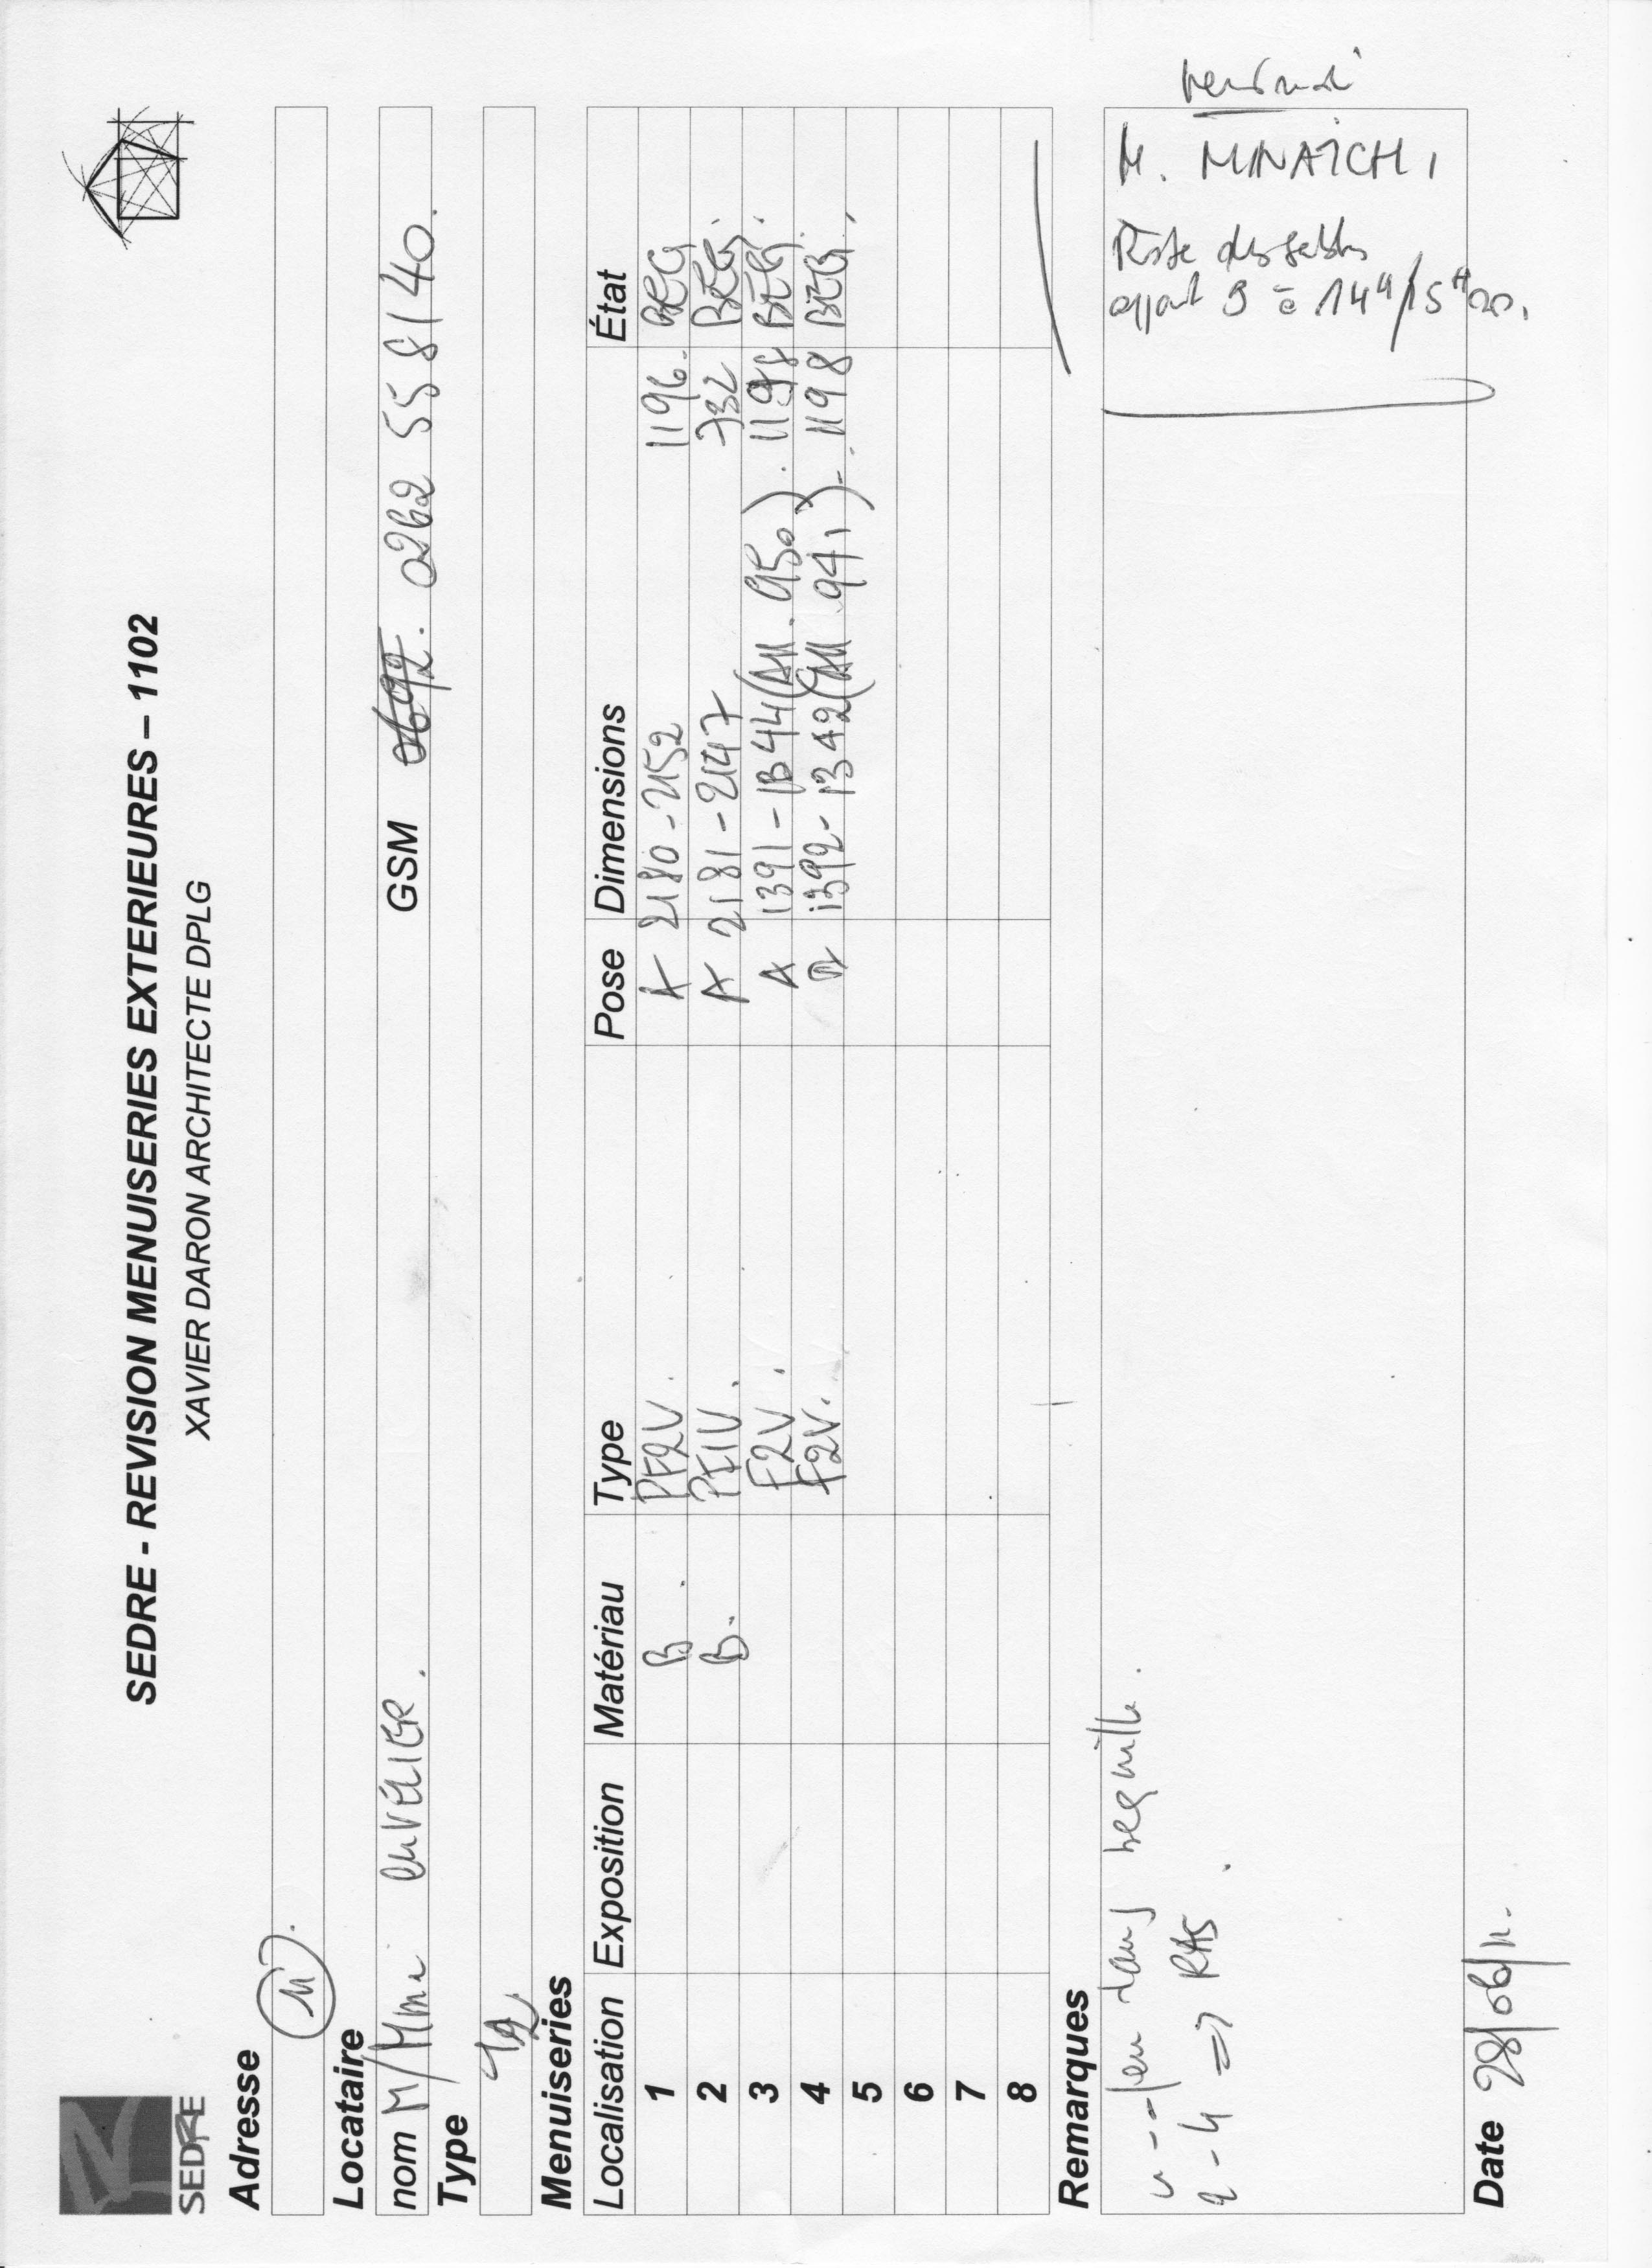 SEDRE - REVISION MENUISERIES EXTERIEURES – 1102
XAVIER DARON ARCHITECTE DPLG
SEDRE
Adresse
11
Locataire
nom M/Mme CUVELIER. GSM 0692. 0262 55 81 40.
Type
Menuiseries
Localisation Exposition Matériau Type Pose Dimensions État
1 B. PF2V. A 2180 - 2152 1196. BEG
2 B. PF1V. A 2181 - 2147 732 BEG.
3 F2V. A 1391 - 1344 (All. 950). 1198 BEG.
4 F2V. A 1392 - 1342 (All 941). 1198 BEG.
5
6
7
8
Remarques
jeu dans béquille.
2 - 4 => RAS.
M. MINATCHI
appart 9 à 14H/15H00.
Date 28/06/11.